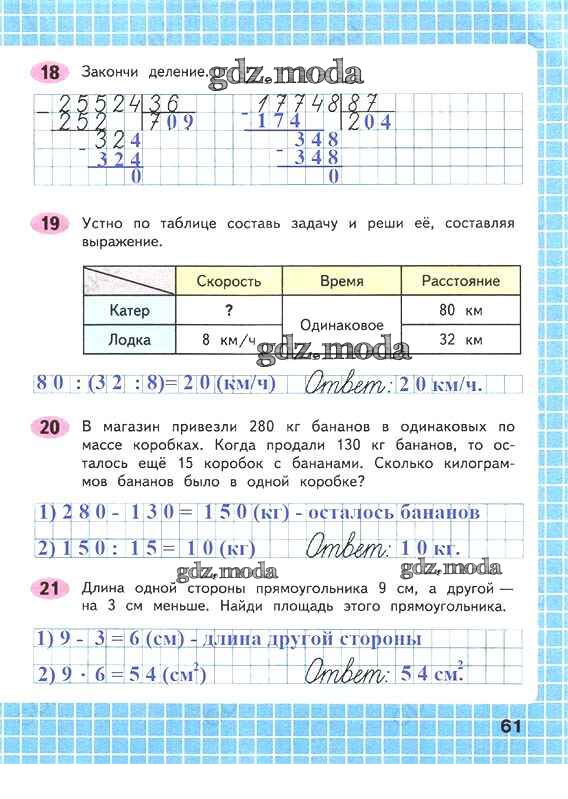 18 Закончи деление. gdz.moda
25524 36 17748 87
252 709 174 204
324 348
324 348
0 0
19 Устно по таблице составь задачу и реши её, составляя
выражение.
Скорость Время Расстояние
Катер ? Одинаковое 80 км
Лодка 8 км/ч 32 км
gdz.moda
80 : (32 : 8)= 20 (км/ч) Ответ: 20 км/ч.
20 В магазин привезли 280 кг бананов в одинаковых по
массе коробках. Когда продали 130 кг бананов, то ос-
талось ещё 15 коробок с бананами. Сколько килограм-
мов бананов было в одной коробке?
1) 280 - 130 = 150 (кг) - осталось бананов
2) 150 : 15 = 10 (кг) Ответ: 10 кг.
gdz.moda gdz.moda
21 Длина одной стороны прямоугольника 9 см, а другой —
на 3 см меньше. Найди площадь этого прямоугольника.
1) 9 - 3 = 6 (см) - длина другой стороны
2) 9 · 6 = 54 (см²) Ответ: 54 см².
61